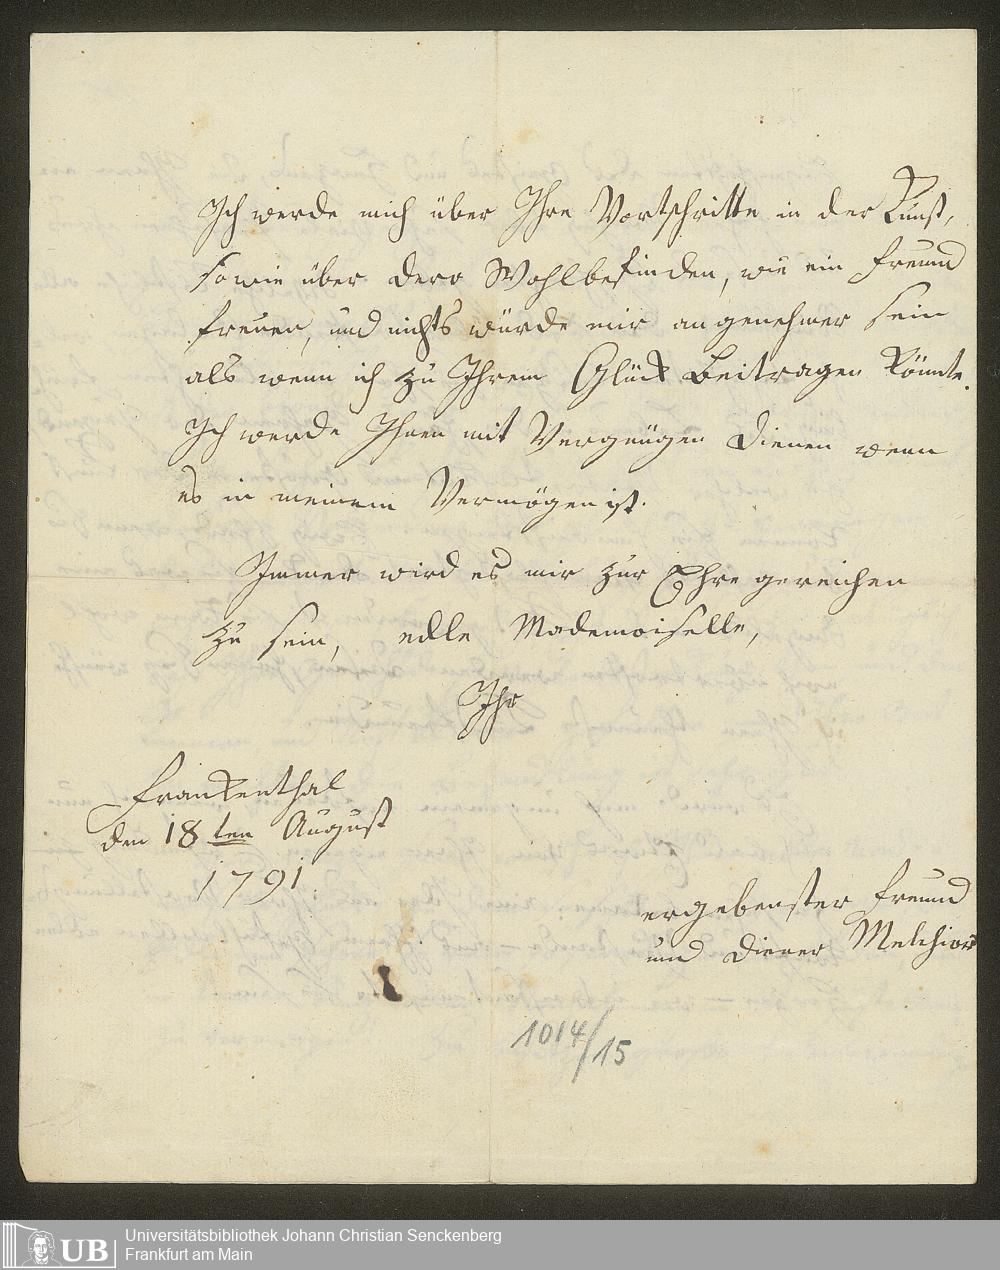 Ich werde mich über Ihre Vortschritte in der Kunst,
sowie über dero Wohlbefinden, wie ein Freund
freuen, und nichts würde mir angenehmer sein
als wenn ich zu Ihrem Glück beitragen könnte.
Ich werde Ihnen mit Vergnügen dienen wenn
es in meinem Vermögen ist.
Immer wird es mir zur Ehre gereichen
zu sein, edle Mademoiselle,
Ihr
Frankenthal
den 18ten August
1791.
ergebenster Freund
und Diener Melchior
1014/15
UB
Universitätsbibliothek Johann Christian Senckenberg
Frankfurt am Main